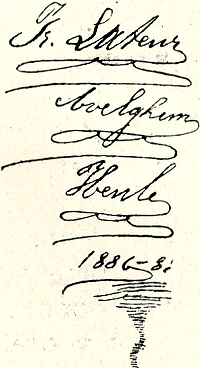 Fr. Lateur
Avelghem
Heule